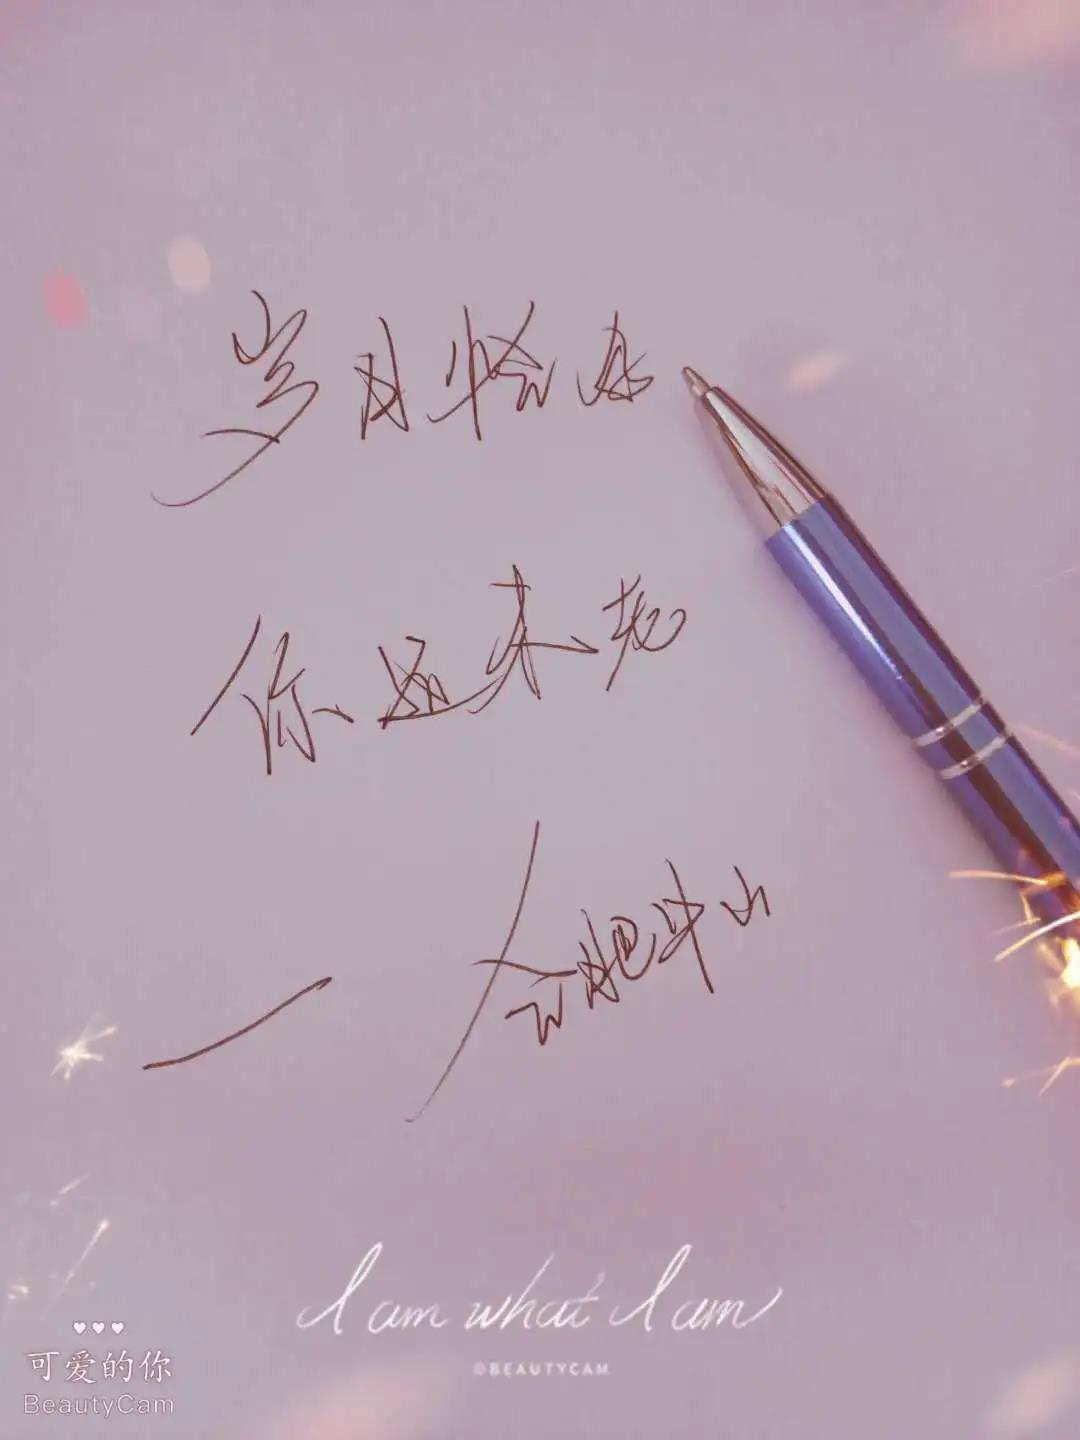 岁月恰好
你还未老
一 合肥半山
I am what I am
©BEAUTYCAM
♥♥♥
可爱的你
BeautyCam